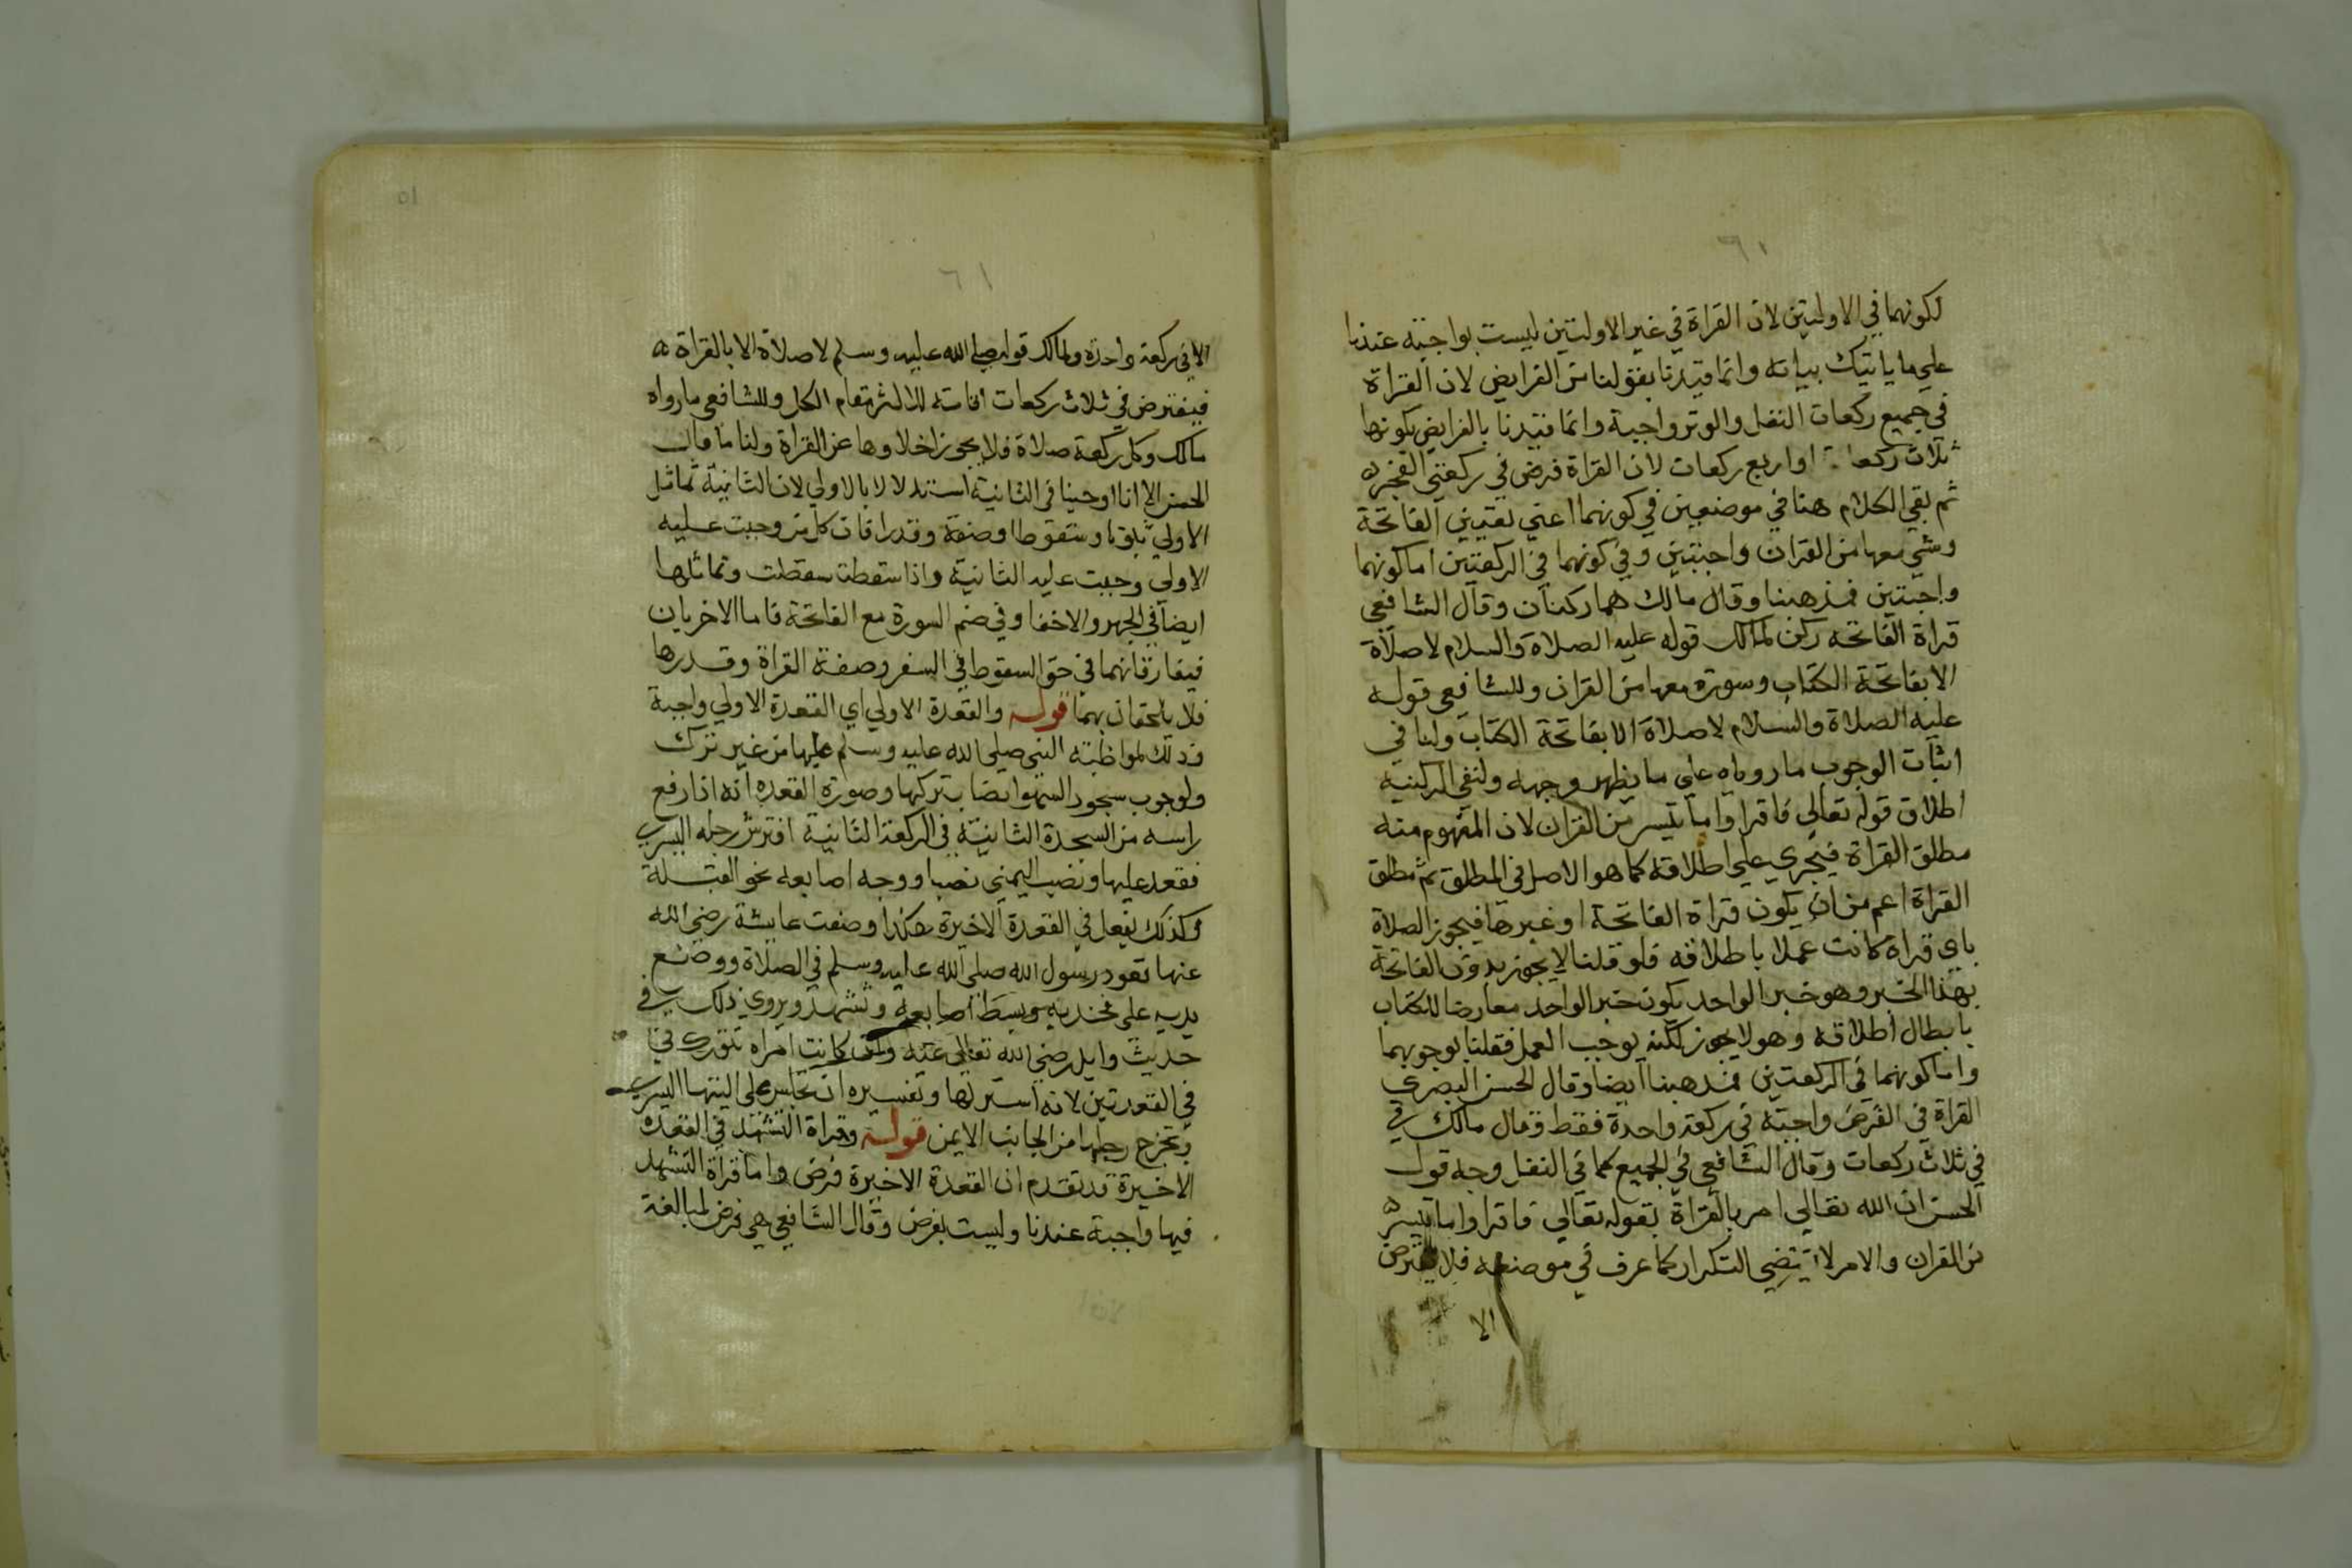 ٦١
لكونهما في الاوليتين لان القراة في غير الاوليتين ليست بواجبة عندنا
علي ما ياتيك بيانه وانما قيدنا بقولنا من الفرايض لان القراة
في جميع ركعات النفل والوتر واجبة وانما قيدنا بالفرايض بكونها
ثلاث ركعات او اربع ركعات لان القراة فرض في ركعتي الفجر ه
ثم بقي الكلام هنا في موضعين في كونهما اعني تعيين الفاتحة
وشي معها من القران واجبتين وفي كونهما في الركعتين اما كونهما
واجبتين فمذهبنا وقال مالك هما ركنان وقال الشافعي
قراة الفاتحه ركن لمالك قوله عليه الصلاة والسلام لا صلاة
الا بفاتحة الكتاب وسورة معها من القران وللشافعي قوله
عليه الصلاة والسلام لا صلاة الا بفاتحة الكتاب ولنا في
اثبات الوجوب ما روياه علي ما يظهر وجهه ولنفي الركنية
اطلاق قوله تعالي فاقراوا ما تيسر من القران لان المفهوم منه
مطلق القراة فيجري علي اطلاقه كما هو الاصل في المطلق ثم مطلق
القراة اعم من ان يكون قراة الفاتحة او غيرها فيجوز الصلاة
باي قراة كانت عملا باطلاقه فلو قلنا لا يجوز بدون الفاتحة
بهذا الخبر وهو خبر الواحد يكون خبر الواحد معارضا للكتاب
بابطال اطلاقه وهو لا يجوز لكنه يوجب العمل فقلنا بوجوبهما
واما كونهما في الركعتين فمذهبنا ايضا وقال الحسن البصري
القراة في الفرض واجبة في ركعة واحدة فقط وقال مالك في
في ثلاث ركعات وقال الشافعي في الجميع كما في النفل وجه قول
الحسن ان الله تعالي امر بالقراة بقوله تعالي فاقراوا ما تيسر ه
من القران والامر لا يقتضي التكرار كما عرف في موضعه فلا يفترض
الا
٥١
٦١
الا في ركعة واحدة ولمالك قوله صلي الله عليه وسلم لا صلاة الا بالقراة ه
فيفترض في ثلاث ركعات اقامة للاكثر مقام الكل وللشافعي ما رواه
مالك وكل ركعة صلاة فلا يجوز اخلاوها عن القراة ولنا ما قال
الحسن الا انا اوجبنا في الثانية استدلالا بالاولي لان الثانية تماثل
الاولي ثبوتا وسقوطا وصفة وقدرا فان كل من وجبت عليه
الاولي وجبت عليه الثانية واذا سقطت سقطت وتماثلها
ايضا في الجهر والاخفا وفي ضم السورة مع الفاتحة فاما الاخريان
فيفارقانهما في حق السقوط في السفر وصفة القراة وقدرها
فلا يلحقان بهما قوله والقعدة الاولي اي القعدة الاولي واجبة
وذلك لمواظبته النبي صلي الله عليه وسلم عليها من غير ترك
ولوجوب سجود السهو ايضا بتركها وصورة القعده انه اذا رفع
راسه من السجدة الثانية في الركعة الثانية افترش رجله اليسري
فقعد عليها ونصب اليمني نصبا ووجه اصابعه نحو القبلة
وكذلك يفعل في القعدة الاخيرة هكذا وصفت عايشة رضي الله
عنها قعود رسول الله صلي الله عليه وسلم في الصلاة ووضع
يديه علي فخذيه وبسط اصابعه وتشهد ويروي ذلك في
حديث وايل رضي الله تعالي عنه وان كانت امراه تتورك في
في القعدتين لانه استر لها وتفسيره ان تجلس علي اليتها اليسري
وتخرج رجلها من الجانب الايمن قوله وقراة التشهد في القعده
الاخيرة قد تقدم ان القعدة الاخيرة فرض واما قراة التشهد
فيها واجبة عندنا وليست بفرض وقال الشافعي هي فرض لمبالغة